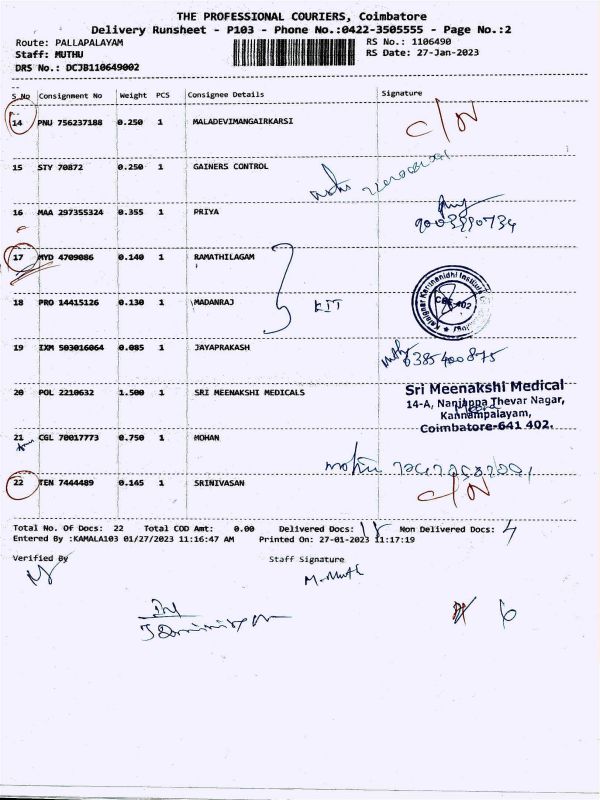 THE PROFESSIONAL COURIERS, Coimbatore
Delivery Runsheet - P103 - Phone No.:0422-3505555 - Page No.:2
Route: PALLAPALAYAM RS No.: 1106490
Staff: MUTHU RS Date: 27-Jan-2023
DRS No.: DCJB110649002
S No Consignment No Weight PCS Consignee Details Signature
14 PNU 756237188 0.250 1 MALADEVIMANGAIRKARSI C/N
15 STY 70872 0.250 1 GAINERS CONTROL
16 MAA 297355324 0.355 1 PRIYA
17 MYD 4709086 0.140 1 RAMATHILAGAM
18 PRO 14415126 0.130 1 MADANRAJ KIT
CBE-402
19 IXM 503016064 0.085 1 JAYAPRAKASH
20 POL 2210632 1.500 1 SRI MEENAKSHI MEDICALS
Sri Meenakshi Medical
14-A, Nanjappa Thevar Nagar,
Kannampalayam,
Coimbatore-641 402.
21 CGL 70017773 0.750 1 MOHAN
22 TEN 7444489 0.145 1 SRINIVASAN C/N
Total No. Of Docs: 22 Total COD Amt: 0.00 Delivered Docs: 18 Non Delivered Docs: 4
Entered By :KAMALA103 01/27/2023 11:16:47 AM Printed On: 27-01-2023 11:17:19
Verified By Staff Signature
M. Muth